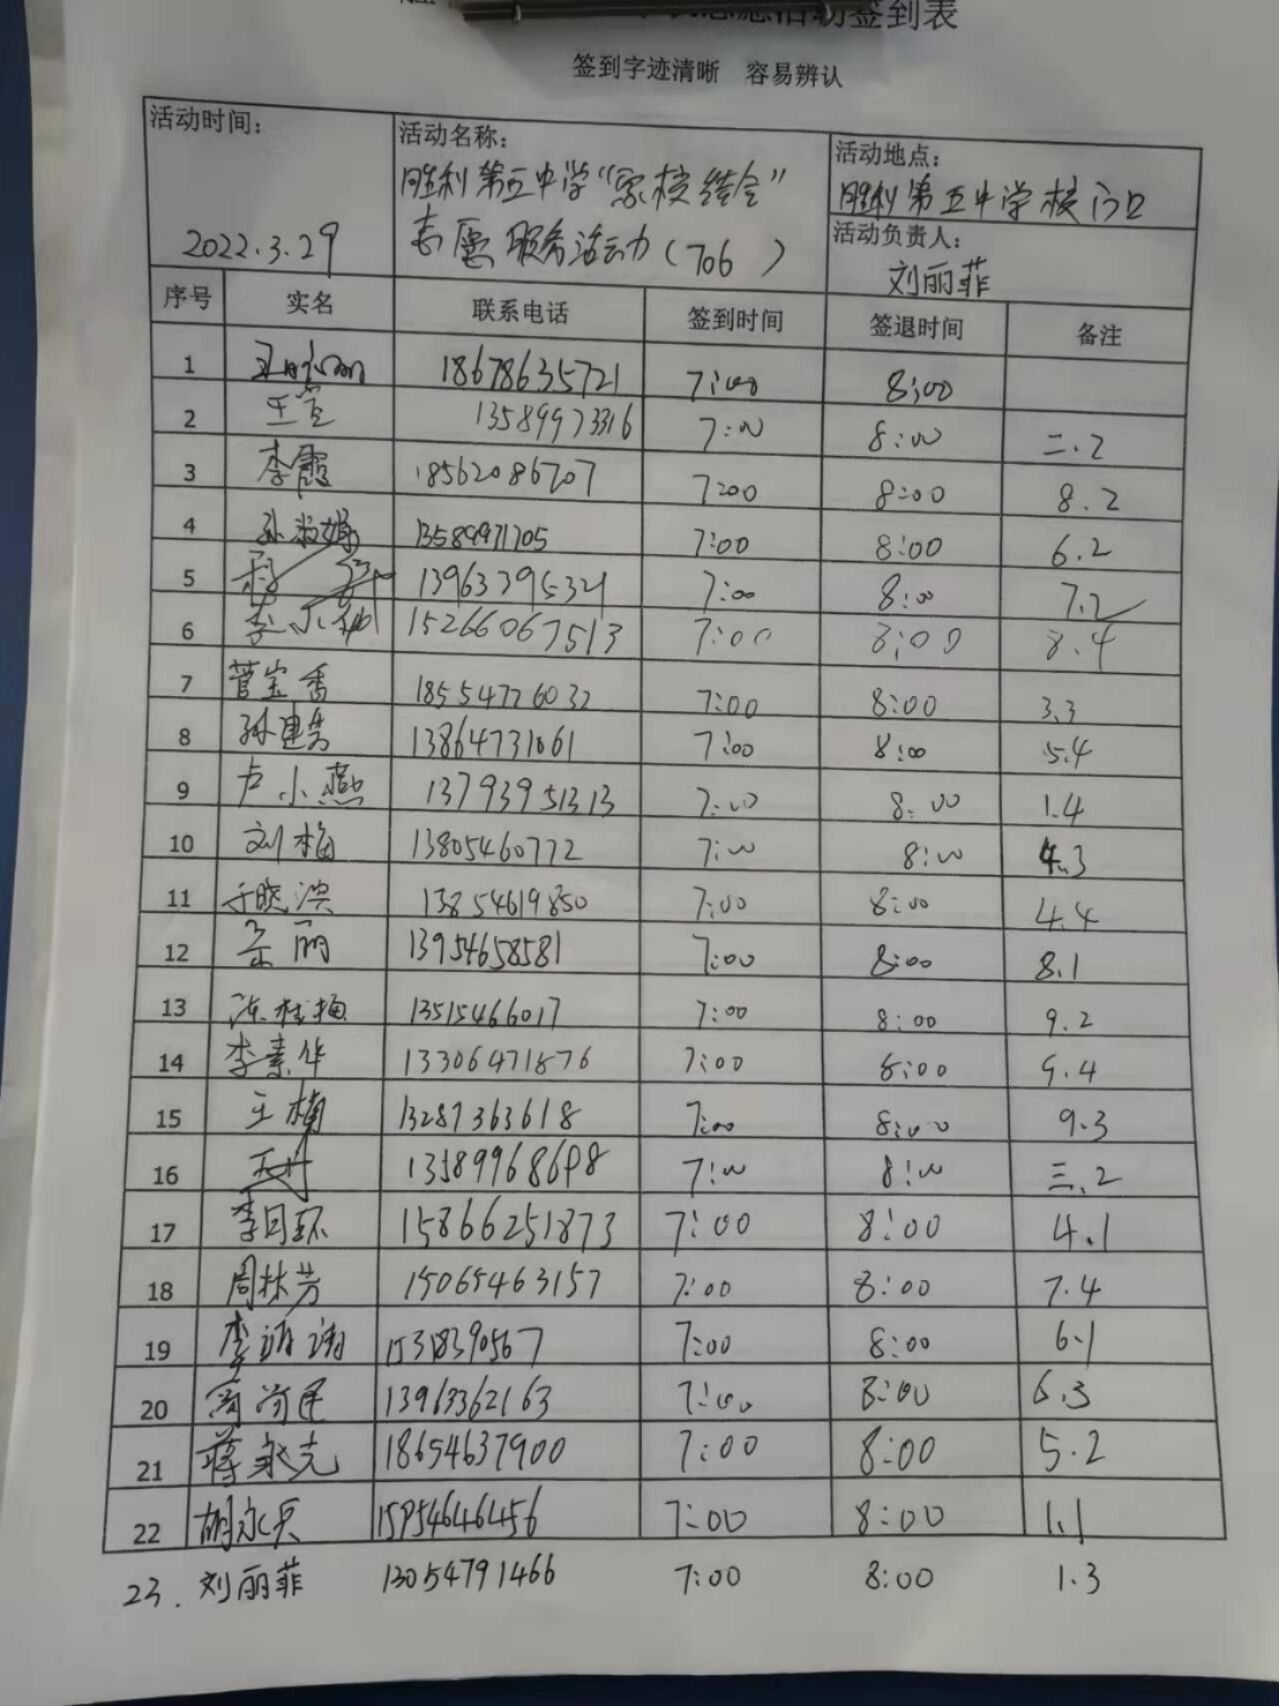 活动签到表
签到字迹清晰 容易辨认
活动时间： 2022.3.29
活动名称： 胜利第五中学“家校结合”
志愿服务活动（706 ）
活动地点：
胜利第五中学校门口
活动负责人：
刘丽菲
序号 实名 联系电话 签到时间 签退时间 备注
1 18678635721 7:00 8:00
2 王莹 13589973316 7:00 8:00 二.2
3 李霞 18562086707 7:00 8:00 8.2
4 孙淑娟 13589971705 7:00 8:00 6.2
5 13963395321 7:00 8:00 7.2
6 15266067513 7:00 8:00 8.4
7 菅宝香 18554726032 7:00 8:00 3.3
8 13864731061 7:00 8:00 5.4
9 卢小燕 13793951313 7:00 8:00 1.4
10 刘梅 13805460772 7:00 8:00 4.3
11 于晓滨 13854619850 7:00 8:00 4.4
12 丽 13954658581 7:00 8:00 8.1
13 陈桂梅 13515466017 7:00 8:00 9.2
14 李素华 13306471876 7:00 8:00 9.4
15 王楠 13287363618 7:00 8:00 9.3
16 13589968698 7:00 8:00 三.2
17 李月环 15866251873 7:00 8:00 4.1
18 周林芳 15065463157 7:00 8:00 7.4
19 李 15318390567 7:00 8:00 6.1
20 13963362163 7:00 8:00 6.3
21 蒋永亮 18654637900 7:00 8:00 5.2
22 胡永兵 15954646456 7:00 8:00 1.1
23. 刘丽菲 13054791466 7:00 8:00 1.3